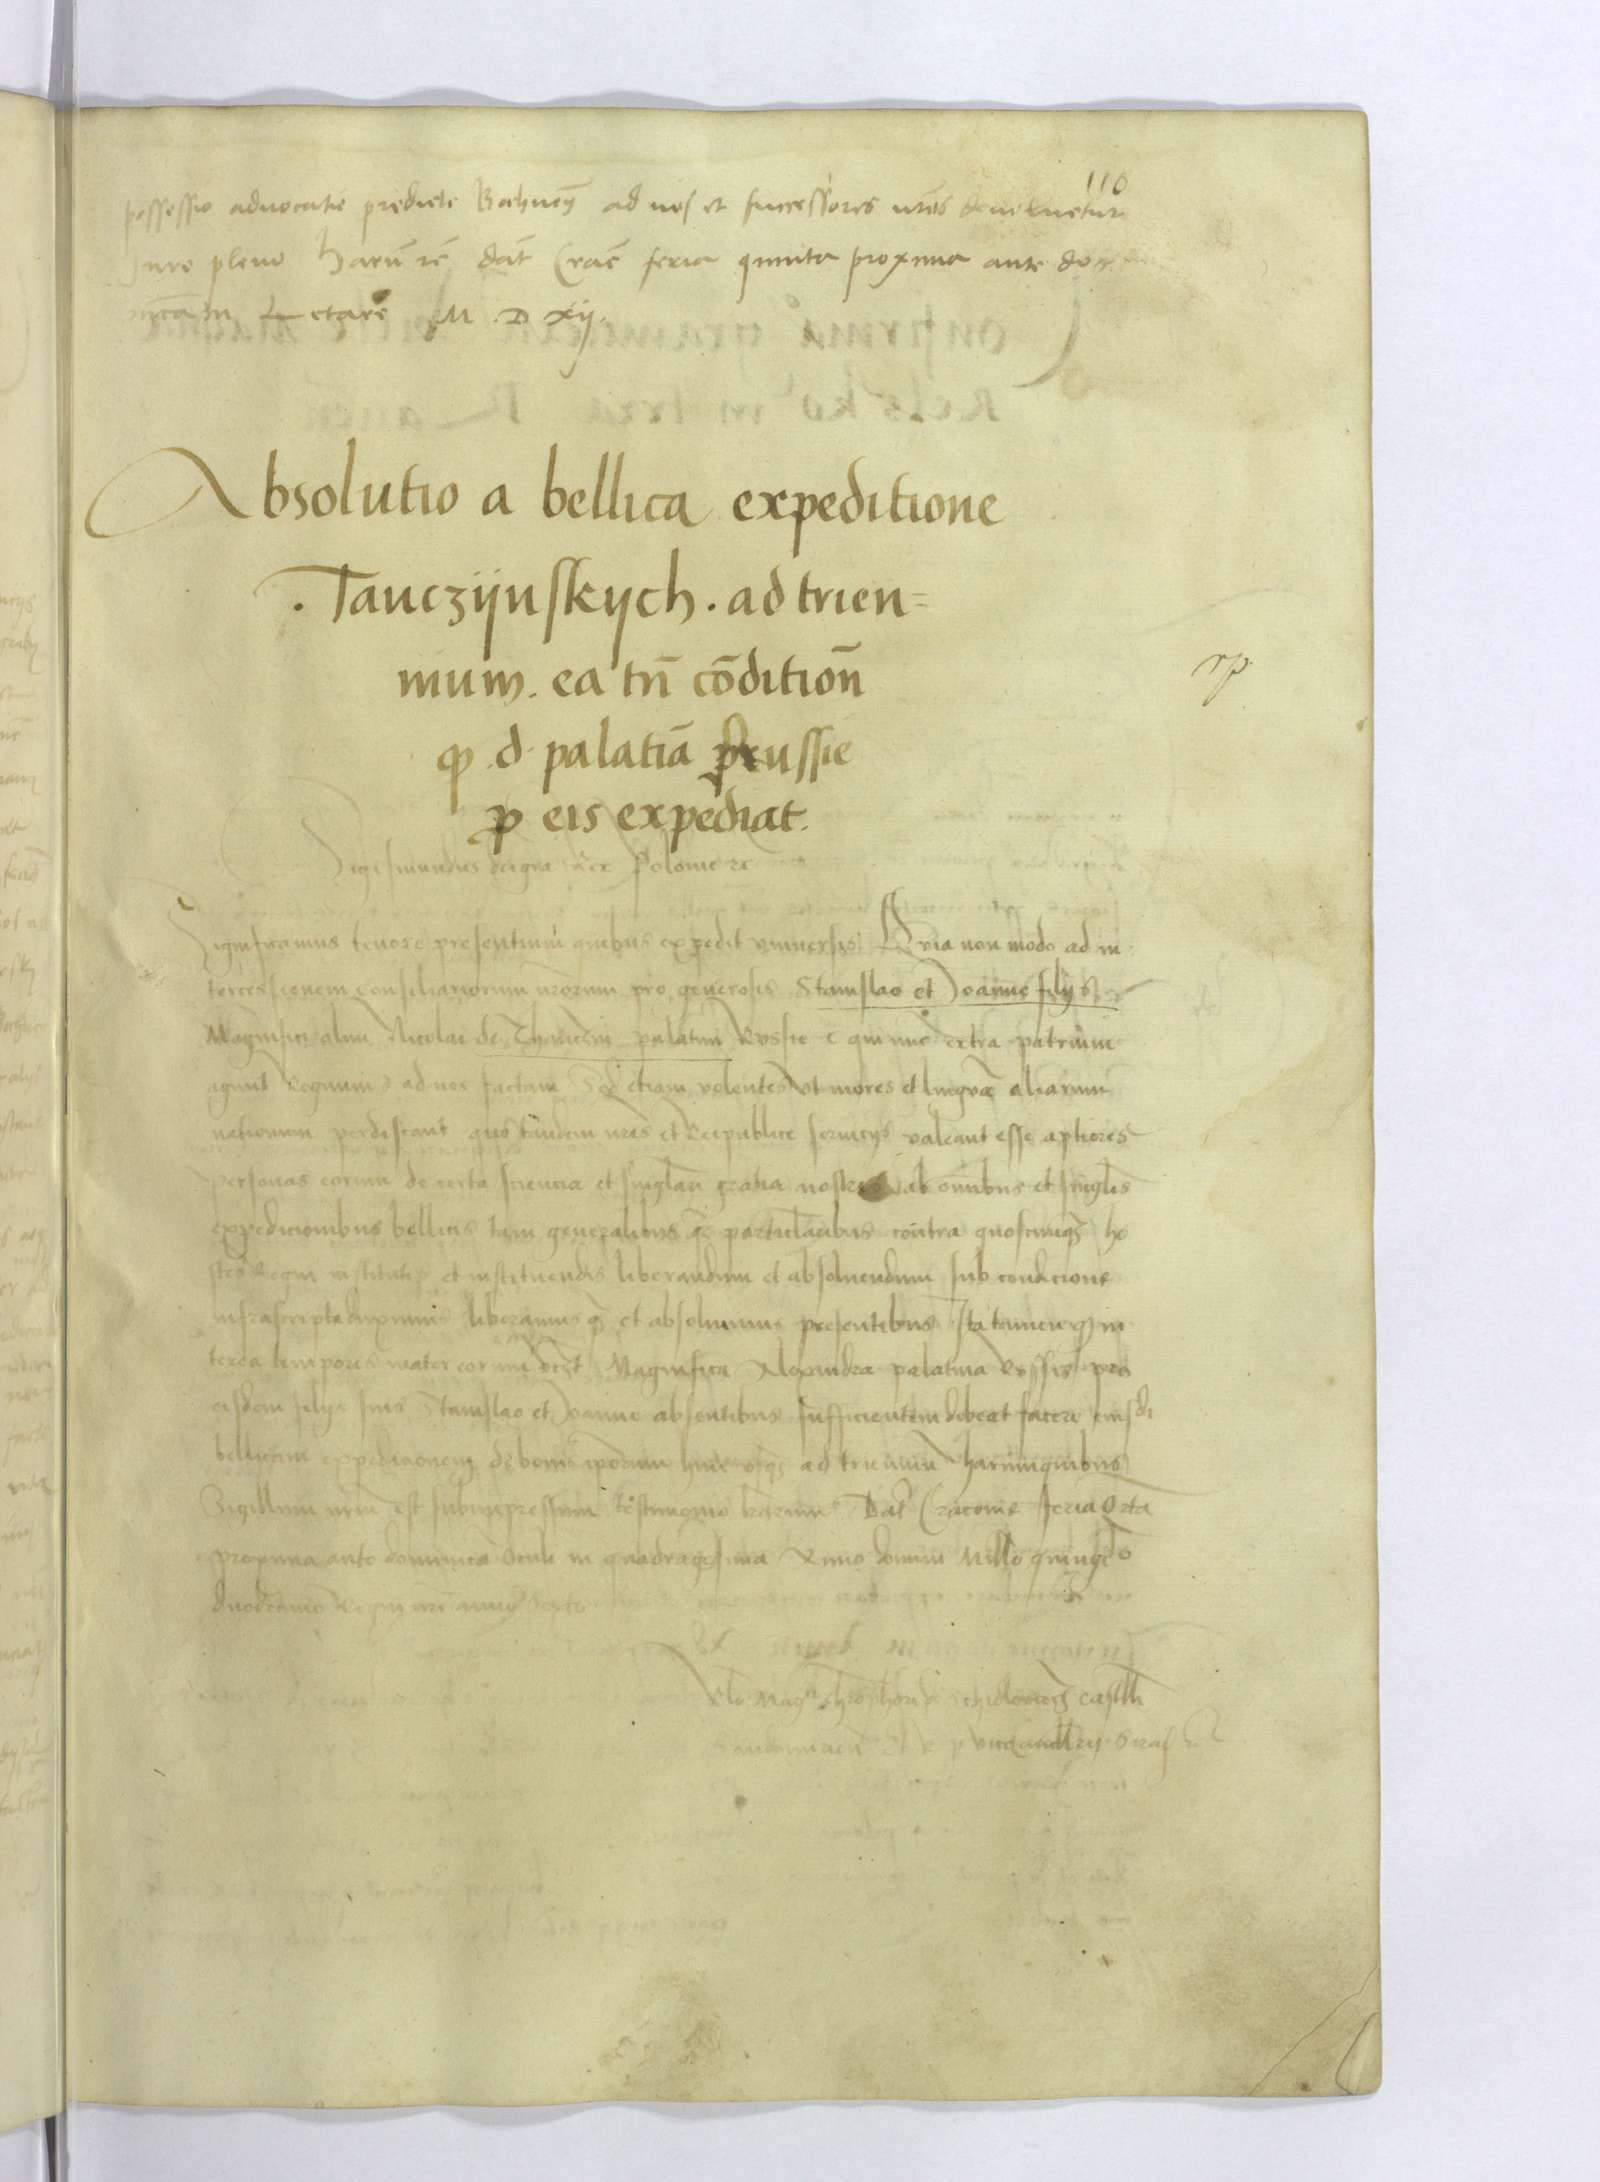 110
possessio advocatie predicte Bahnen̄ ad nos et successores nr̄os devoluetur
Jure pleno harū rē dat̄ Crac̄ feria quinta proxima ante do
nicam Letare M D xij.
Absolutio a bellica expeditione
. Tanczijnskych . ad trien=
nium . ea tn̄ cōdition̄
ꝙ .d. palatiā Russie
ꝓ eis expediat.
rp.
Sigismundus dei gra Rex Polonie ꝛc
Significamus tenore presentium quibus expedit vniuersis Quia non modo ad in
tercessionem consiliariorum nr̄orum pro generosis Stanislao et Joanne filijs
Magnifici olim Nicolai de Thanczin palatini Russie qui nūc extra patrium
agunt Regnum ad nos factam Sed etiam volentes vt mores et linguā aliarum
nationum perdiscant quo tandem nr̄is et Reipublice seruicijs valeant esse aptiores
personas eorum de certa sciencia et singlari gratia nostris ab omnibus et singlis
expedicionibus bellicis tam generalibus ꝗ̄ particlaribus contra quoscunqꝫ ho
stes Regni institutis et instituendis liberandum et absoluendum sub condicione
infrascripta duximus liberamusqꝫ et absoluimus presentibus Ita tamen ꝙ in
terea temporis mater eorum Magnifica Alexandra palatina Russie pro
eisdem filijs suis Stanislao et Joanne absentibus sufficientem debeat facere
bellicam expeditionem de bonis ipsorum hinc vsqꝫ ad trienniū harum quibus
Sigillum nrm̄ est subimpressum testimonio lrarum Dat̄ Cracouie feria
proxima ante dominicā Oculi in quadragesima Anno domini Millo quingēo
duodecimo Regni nr̄i anno sexto
Rlo Mag castlli
Sandomirien̄ et R p vicecancellarij